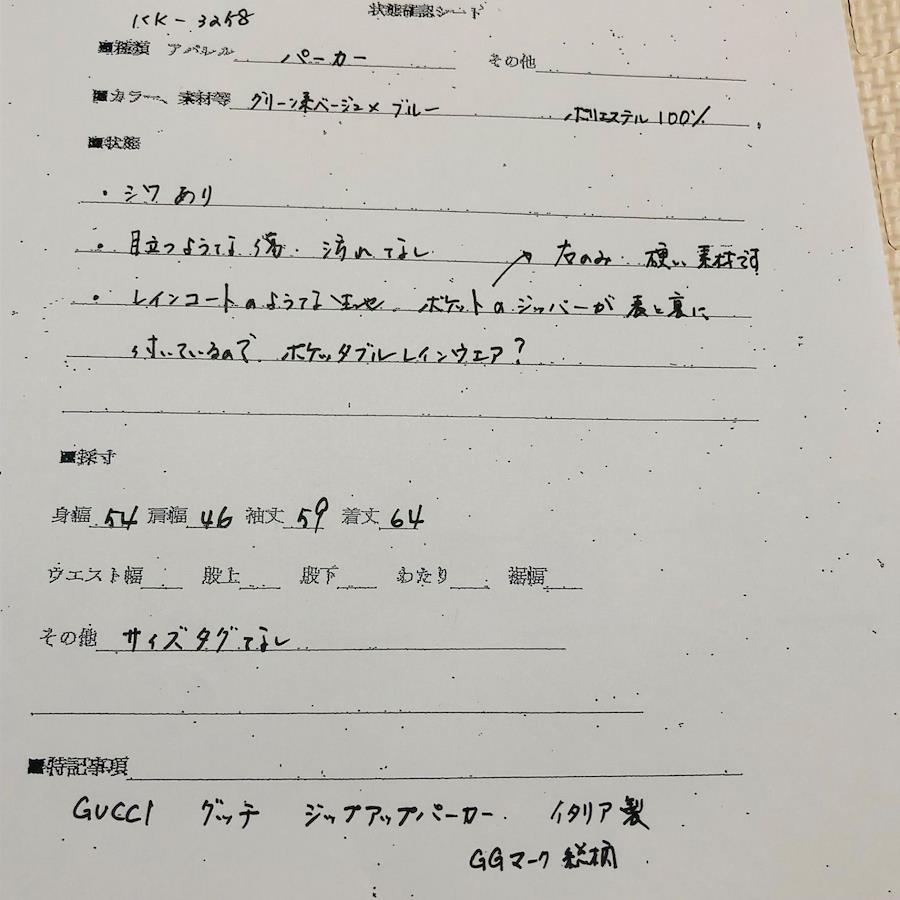 状態確認シート
KK-3258
■種類 アパレル パーカー その他
■カラー、素材等 グリーン系ベージュ×ブルー ポリエステル100%
■状態
・シワあり
・目立つような傷・汚れなし → 右のみ 硬い素材です
・レインコートのような生地 ポケットのジッパーが表と裏に
付いているので ポケッタブルレインウエア?
■採寸
身幅 54 肩幅 46 袖丈 59 着丈 64
ウエスト幅 股上 股下 わたり 裾幅
その他 サイズタグなし
■特記事項
GUCCI グッチ ジップアップパーカー イタリア製
GGマーク総柄